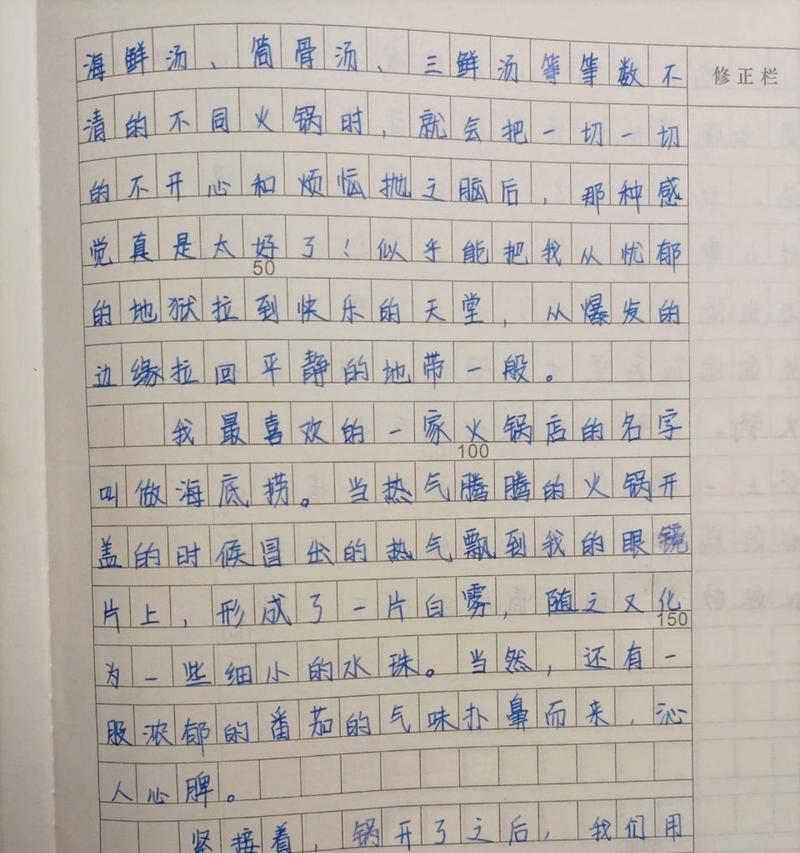 海鲜汤、筒骨汤、三鲜汤等等数不
修正栏
清的不同火锅时，就会把一切一切
的不开心和烦恼抛之脑后，那种感
觉真是太好了！似乎能把我从忧郁
50
的地狱拉到快乐的天堂，从爆发的
边缘拉回平静的地带一般。
我最喜欢的一家火锅店的名字
100
叫做海底捞。当热气腾腾的火锅开
盖的时候冒出的热气飘到我的眼镜
片上，形成了一片白雾，随之又化
150
为一些细小的水珠。当然，还有一
股浓郁的番茄的气味扑鼻而来，沁
人心脾。
紧接着，锅开了之后，我们用